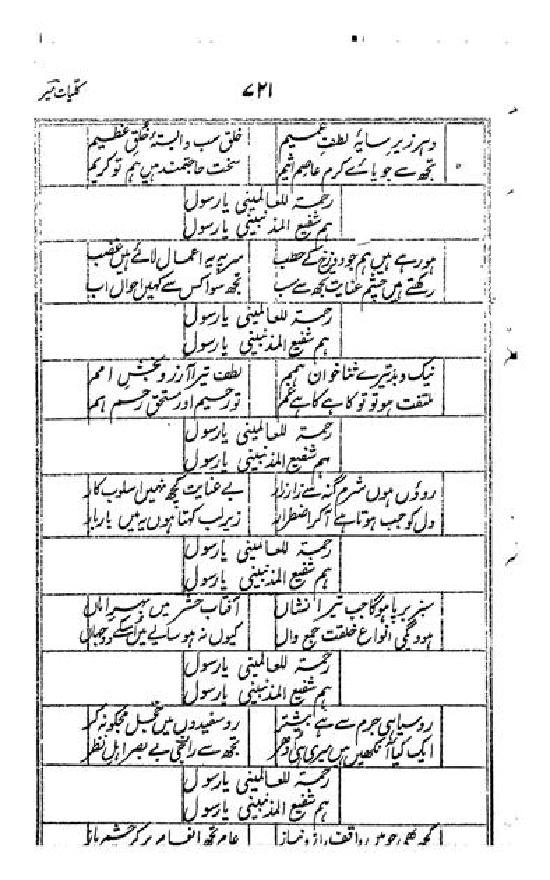 کلیات میر
۷۲۱
دہر زیر سایۂ لطف عمیم خلق سب وابستۂ خلق عظیم
تجھ سے جویائے کرم عاصم اثیم سخت حاجتمند ہیں ہم تو کریم
رحمۃ للعالمینی یارسول
ہم شفیع المذنبینی یارسول
ہو رہے ہیں ہم جو دوزخ کے حطب سر پہ یہ اعمال لائے ہیں غضب
رکھتے ہیں چشم عنایت تجھ سے سب تجھ سوا کس سے کہیں احوال اب
رحمۃ للعالمینی یارسول
ہم شفیع المذنبینی یارسول
نیک و بد تیرے ثنا خوان ہمم لطف تیرا آرزو بخش امم
ملتفت ہو تو تو کاہے کا ہے غم تو رحیم اور مستحق رحم ہم
رحمۃ للعالمینی یارسول
ہم شفیع المذنبینی یارسول
روؤں ہوں شرم گنہ سے زار زار بے عنایت کچھ نہیں اسلوب کار
دل کو جب ہوتا ہے آکر اضطرار زیر لب کہتا ہوں یہ میں بار بار
رحمۃ للعالمینی یارسول
ہم شفیع المذنبینی یارسول
سبز برپا ہوگا جب تیرا نشاں آفتاب حشر میں بہر اماں
ہووگی انواع خلقت جمع واں کیوں نہ ہو سایے میں اسکے دوجہاں
رحمۃ للعالمینی یارسول
ہم شفیع المذنبینی یارسول
روسیاہی جرم سے ہے بیشتر روسفیدوں میں خجل مجکو نہ کر
ایک کیا آنکھیں ہیں میری ہی ادھر تجھ سے راجی بے بصر اہل نظر
رحمۃ للعالمینی یارسول
ہم شفیع المذنبینی یارسول